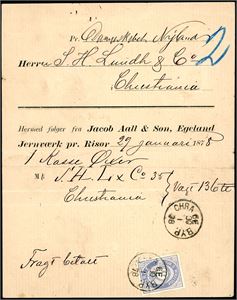 Pr.
Herrer S. H. Lundh & Co
2
Christiania
Hermed følger fra Jacob Aall & Søn, Egeland
Jernværk pr. Risør 29 januari 1878
1 Kasse
Mk S. H. L & Co 35
Vægt 136
Christiania
CHRA
BYP
78
Fragt betalt
BYP
78